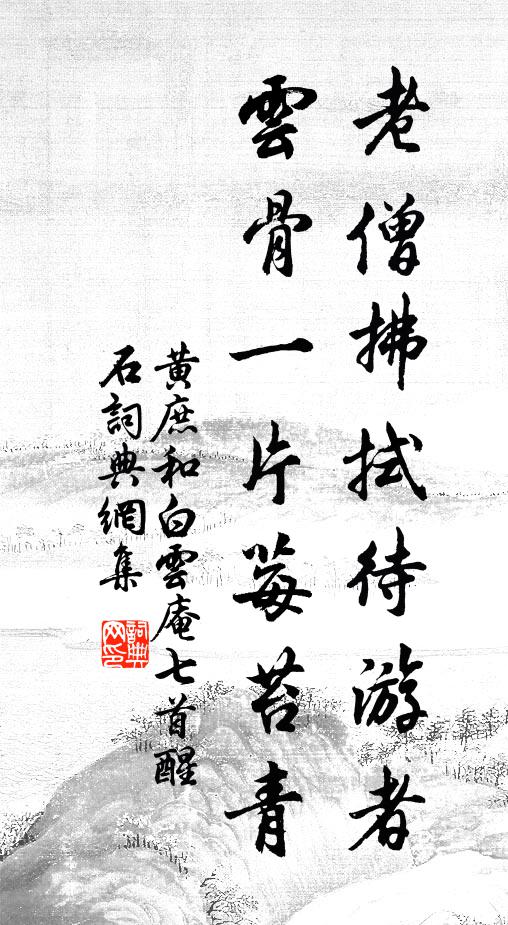 老僧拂拭待游者
雲骨一片莓苔青
黃庶和白雲庵七首醒
石詞典網集
詞典網印